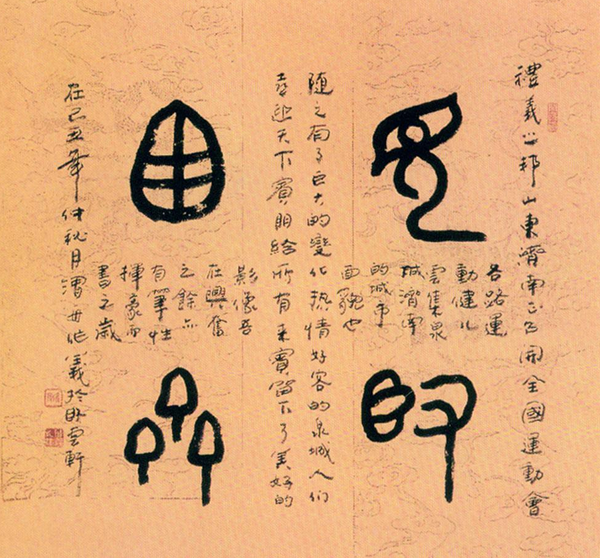 禮義之邦山東濟南正召開全國運動會
各路運
動健儿
雲集泉
城濟南
的城市
面貌也
隨之有了巨大的變化热情好客的泉城人们
喜迎天下賓朋給所有来賓留下了美好的
影像吾
在興奮
之餘亦
有筆性
揮豪而
書之歲
在己丑年仲秋月 義於卧雲軒